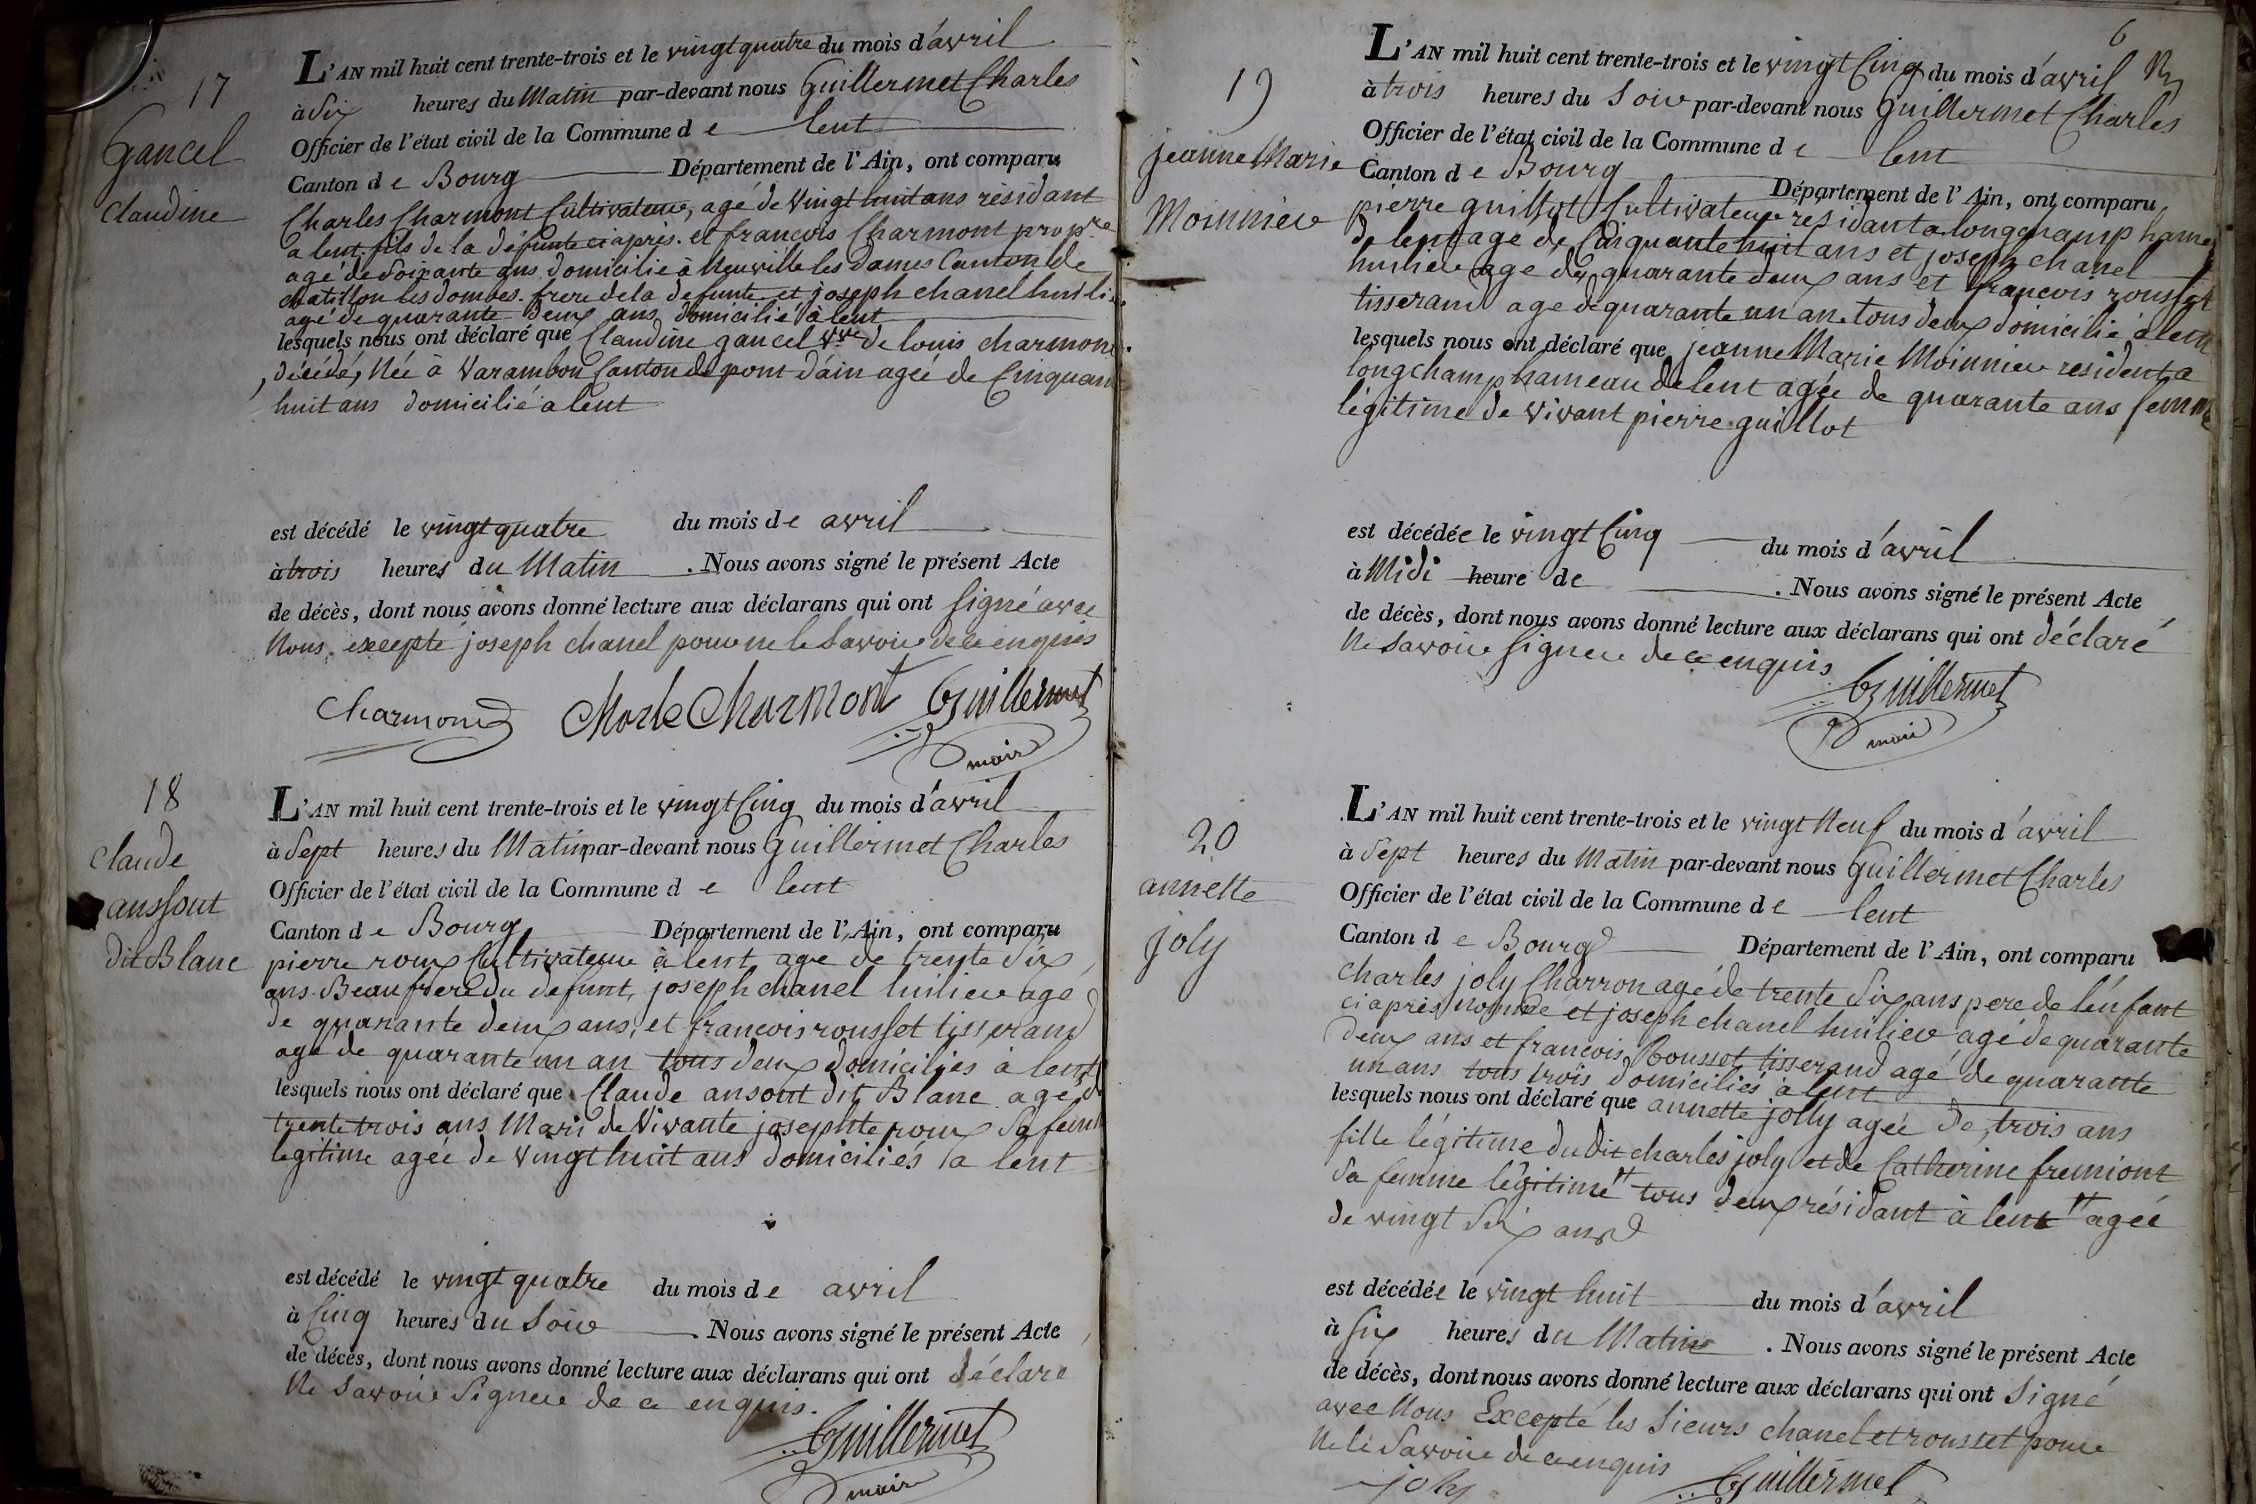 17
Gancel
Claudine
L'AN mil huit cent trente-trois et le vingt quatre du mois d'avril
à Six heures du Matin par-devant nous Guillermet Charles
Officier de l'état civil de la Commune de lent
Canton de Bourg Département de l'Ain, ont comparu
Charles Charmont Cultivateur, agé de vingt huit ans résidant
a lent fils de la défunte ciaprès. et francois Charmont propre
agé de Soixante ans domicilié à Neuville les Dames Canton de
chatillon les dombes. frere de la defunte et joseph chanel huilie
agé de quarante Deux ans domicilié à lent
lesquels nous ont déclaré que Claudine gancel vve de louis charmont
décédé, Née à Varambon Canton de pont d'ain agée de Cinquante
huit ans domicilié a lent
est décédé le vingt quatre du mois de avril
à trois heures du Matin . Nous avons signé le présent Acte
de décès, dont nous avons donné lecture aux déclarans qui ont Signé avec
Nous. excepté joseph chanel pour ne le Savoir de ce enquis
Charmond Charle Charmont Guillermet
maire
18
Claude
anssout
dit Blanc
L'AN mil huit cent trente-trois et le vingt Cinq du mois d'avril
à Sept heures du Matin par-devant nous Guillermet Charles
Officier de l'état civil de la Commune de lent
Canton de Bourg Département de l'Ain, ont comparu
pierre roux Cultivateur à lent age de trente Six
ans. Beaufrere du défunt, joseph chanel huilier agé
de quarante deux ans, et francois rousset tisserand
agé de quarante un an tous deux domiciliés à lent
lesquels nous ont déclaré que Claude ansout dit Blanc agé de
trente trois ans Mari de Vivante josephte roux Sa fem
légitime agée de Vingt huit ans domiciliés a lent
est décédé le vingt quatre du mois de avril
à Cinq heures du Soir . Nous avons signé le présent Acte
de décès, dont nous avons donné lecture aux déclarans qui ont déclaré
Ne Savoir Signer de ce enquis.
Guillermet
maire
6
19
jeanne Marie
Moinnier
L'AN mil huit cent trente-trois et le vingt Cinq du mois d'avril
à trois heures du Soir par-devant nous Guillermet Charles
Officier de l'état civil de la Commune de lent
Canton de Bourg Département de l'Ain, ont comparu
pierre guillot Cultivateur résidant a longchamp hameau
de lent agé de Cinquante huit ans et joseph chanel
huilier agé de quarante deux ans et francois rousset
tisserand agé de quarante un an tous deux domicilié à lent
lesquels nous ont déclaré que jeanne Marie Moinnier résident a
longchamp hameau de lent agée de quarante ans femme
légitime de Vivant pierre guillot
est décédée le vingt Cinq du mois d'avril
à Midi heure de . Nous avons signé le présent Acte
de décès, dont nous avons donné lecture aux déclarans qui ont déclaré
Ne Savoir Signer de ce enquis
Guillermet
maire
20
annette
joly
L'AN mil huit cent trente-trois et le vingt Neuf du mois d'avril
à Sept heures du Matin par-devant nous Guillermet Charles
Officier de l'état civil de la Commune de lent
Canton de Bourg Département de l'Ain, ont comparu
Charles joly Charron agé de trente Six ans pere de l'énfant
ciaprès nommé et joseph chanel huilier agé de quarante
Deux ans et francois Rousset tisserand agé de quarante
un ans tous trois domiciliés à lent
lesquels nous ont déclaré que annette jolly agée de trois ans
fille légitime dudit charles joly et de Catherine fremiont
Sa femme légitime tous deux résidant à lent agée
de vingt Six ans
est décédée le vingt huit du mois d'avril
à Six heures du Matin . Nous avons signé le présent Acte
de décès, dont nous avons donné lecture aux déclarans qui ont Signé
avec Nous Excepté les Sieurs chanel et rousset pour
Ne le Savoir de ce enquis
joly Guillermet